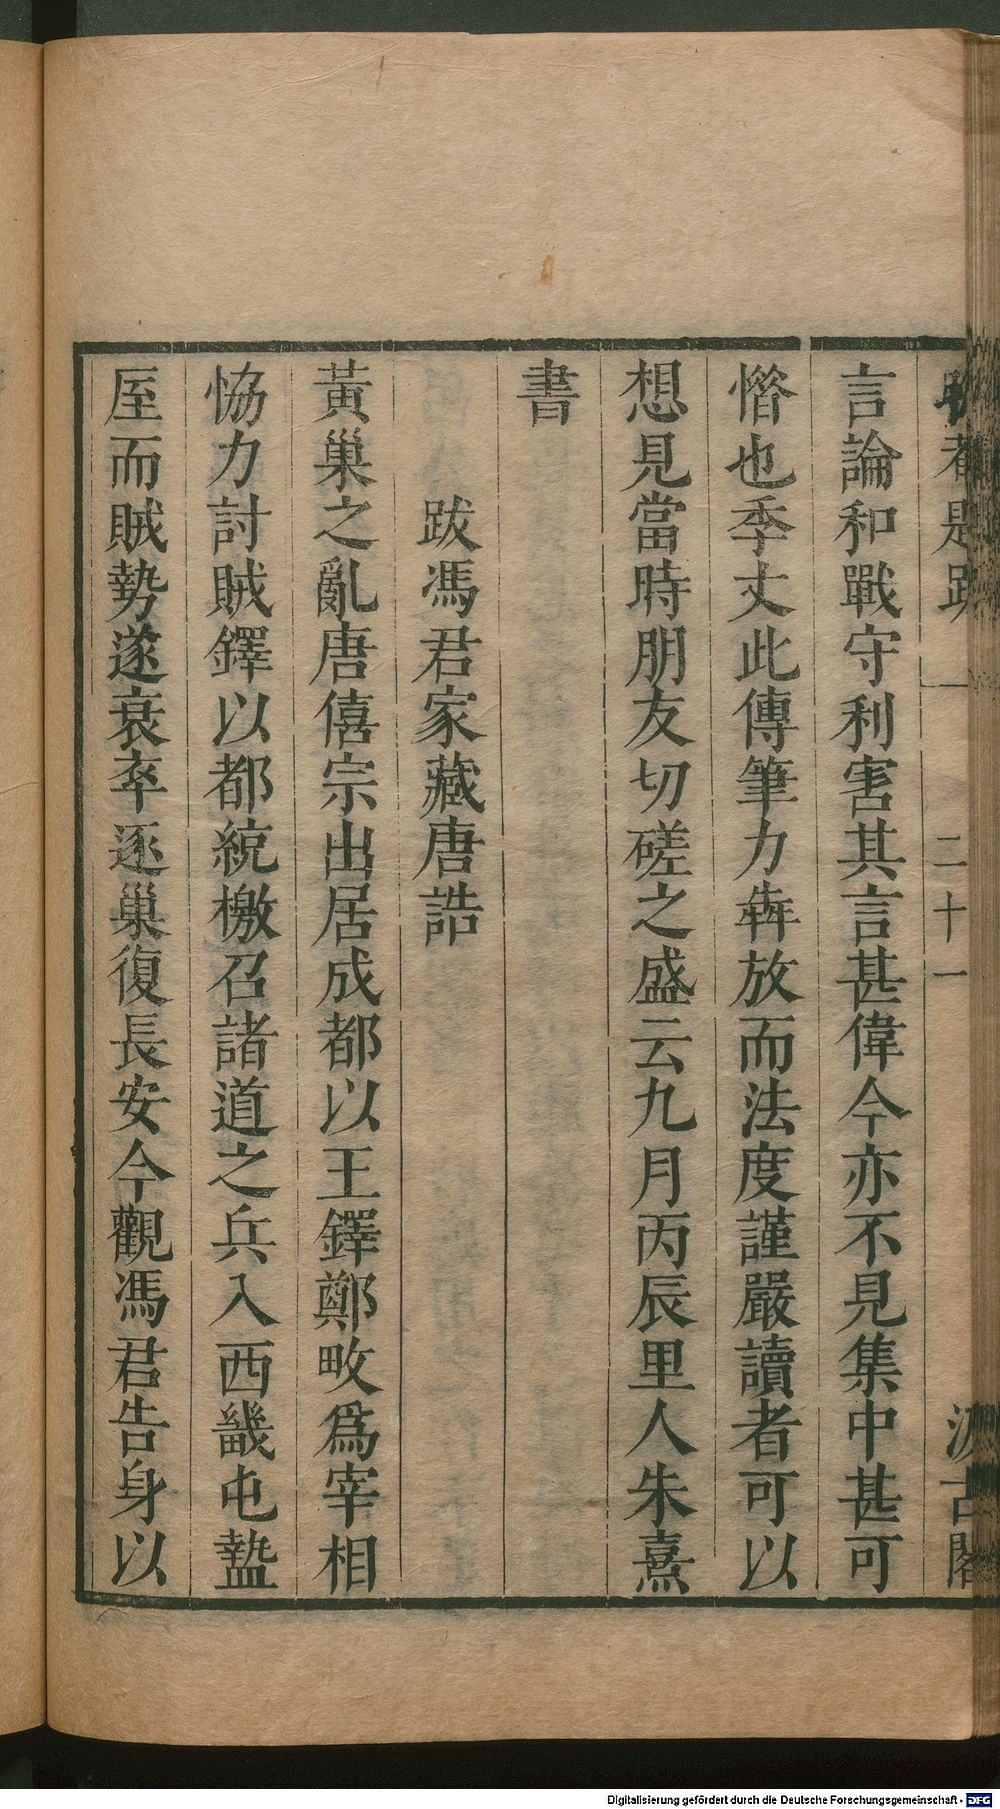 晦菴題跋 一 二十一 汲古閣
言論和戰守利害其言甚偉今亦不見集中甚可
惜也季丈此傳筆力犇放而法度謹嚴讀者可以
想見當時朋友切磋之盛云九月丙辰里人朱熹
書
跋馮君家藏唐誥
黃巢之亂唐僖宗出居成都以王鐸鄭畋爲宰相
恊力討賊鐸以都統檄召諸道之兵入西畿屯盩
厔而賊勢遂衰卒逐巢復長安今觀馮君告身以
Digitalisierung gefördert durch die Deutsche Forschungsgemeinschaft - DFG